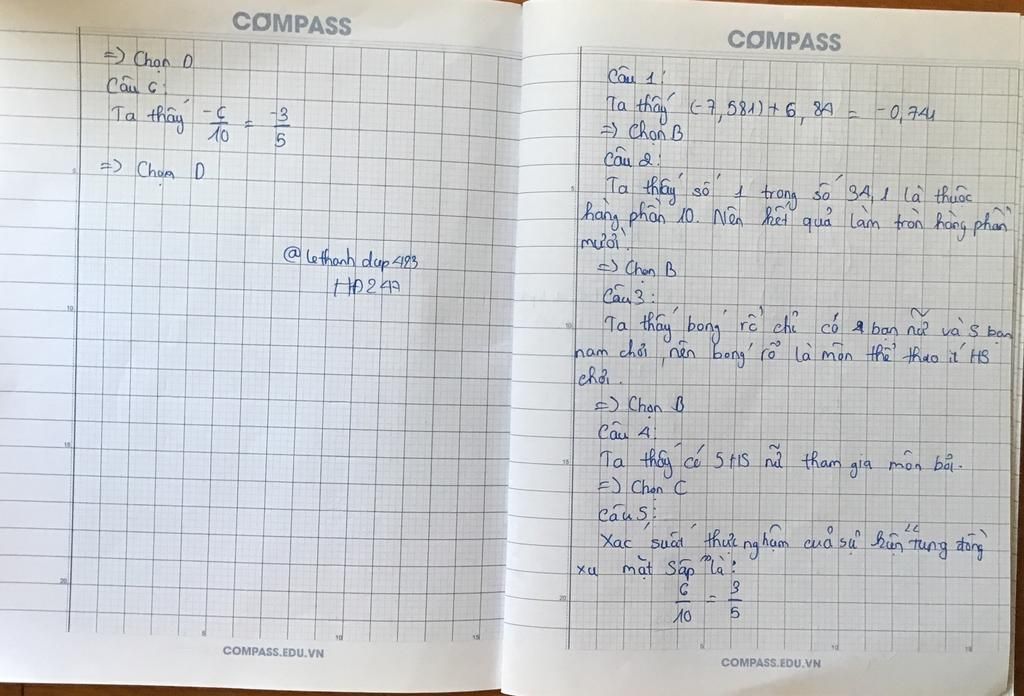 COMPASS
=) Chọn D
Câu 6:
Ta thấy -6/10 = -3/5
=) Chọn D
@lethanhdup423
HD247
COMPASS.EDU.VN
COMPASS
Câu 1:
Ta thấy (-7,581) + 6,84 = -0,741
=) Chọn B
Câu 2:
Ta thấy số 1 trong số 34,1 là thuộc
hàng phần 10. Nên kết quả làm tròn hàng phần
mười.
=) Chọn B
Câu 3:
Ta thấy bóng rổ chỉ có bạn nữ và 5 bạn
nam chơi, nên bóng rổ là môn thể thao ít HS
chơi.
=) Chọn B
Câu 4:
Ta thấy có 5 HS nữ tham gia môn bơi.
=) Chọn C
Câu 5:
Xác suất thực nghiệm của sự kiện "Tung đồng
xu mặt sấp" là:
6/10 = 3/5
COMPASS.EDU.VN